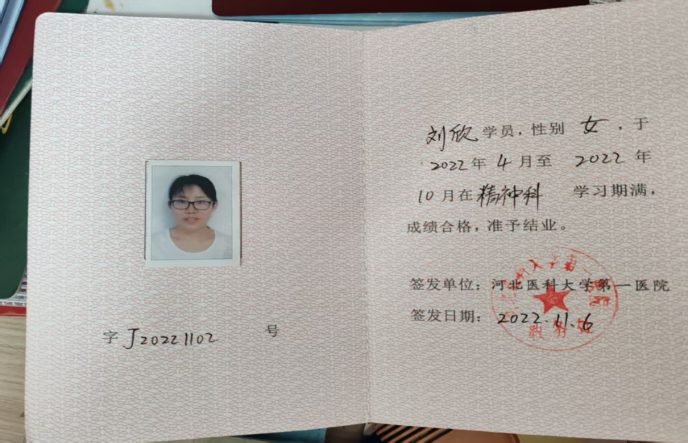 字J20221102 号
刘欣学员，性别 女，于
2022年 4 月至 2022 年
10月在精神科 学习期满，
成绩合格，准予结业。
签发单位：河北医科大学第一医院
签发日期：2022.11.6